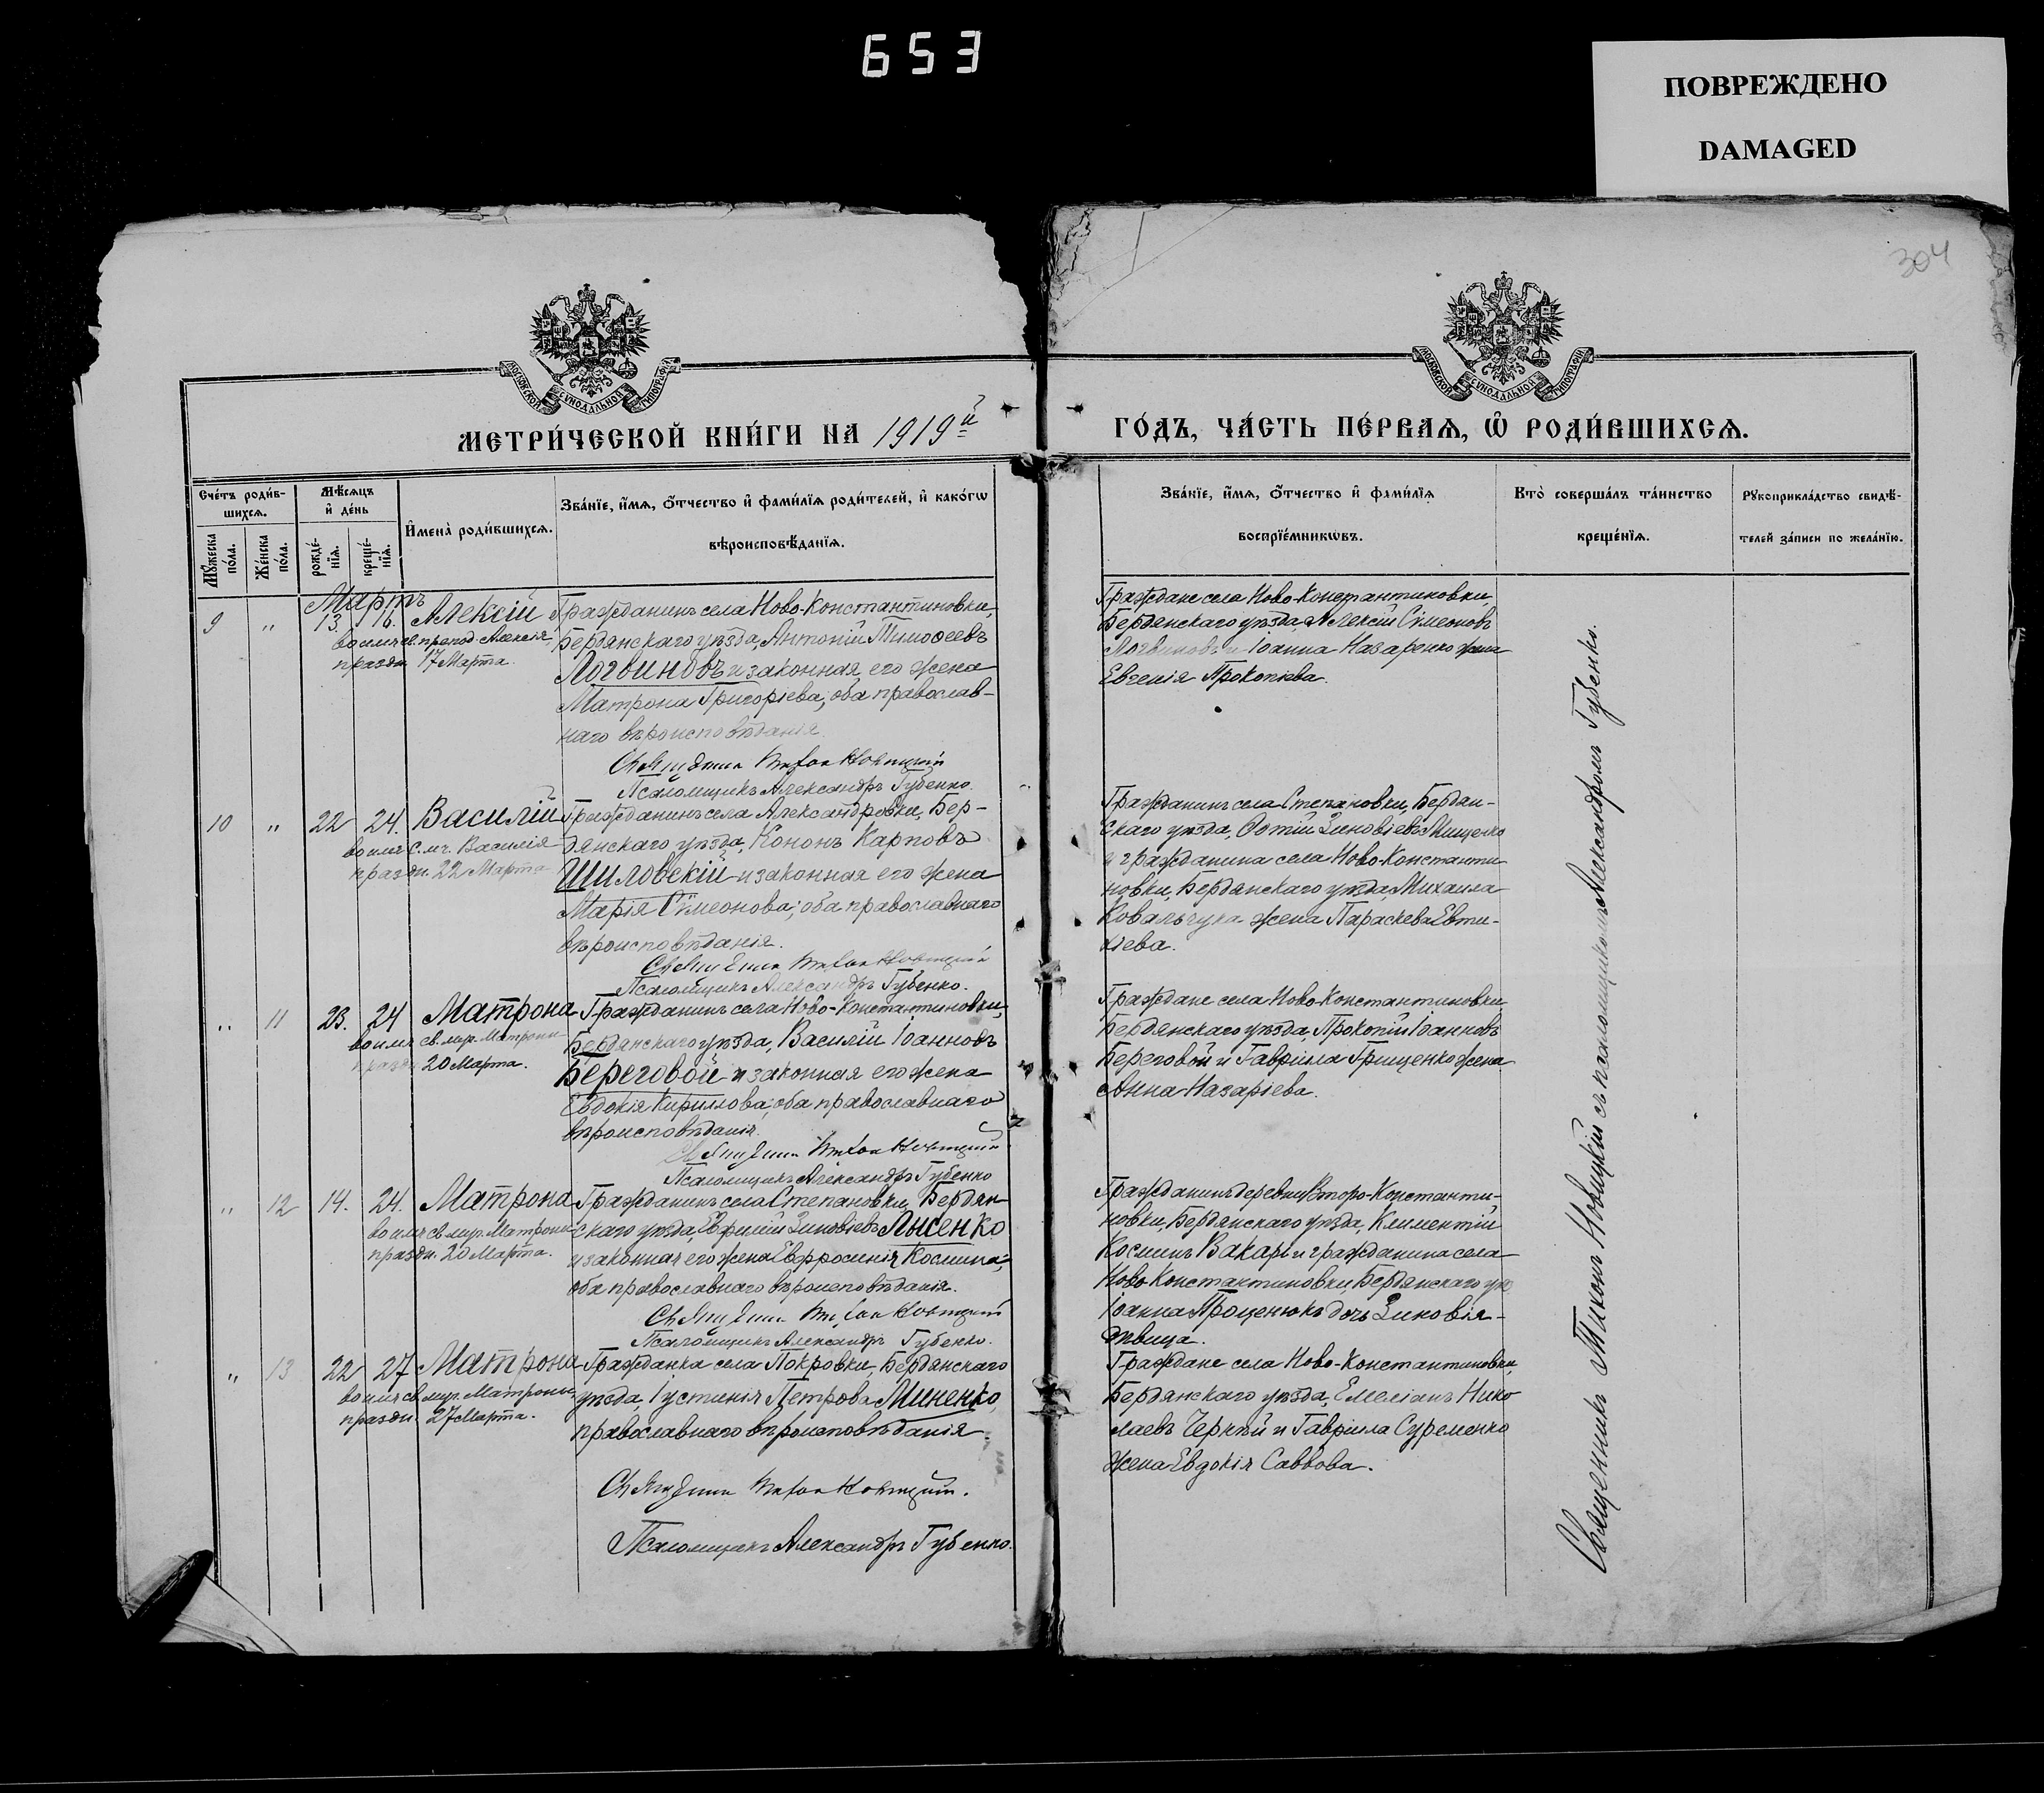 653
ПОВРЕЖДЕНО
DAMAGED
304
МОСКОВСКОЙ СѴНОДАЛЬНОЙ ТИПОГРАФІИ
МОСКОВСКОЙ СѴНОДАЛЬНОЙ ТИПОГРАФІИ
МЕТРИ́ЧЕСКОЙ КНИ́ГИ НА 1919й
ГО́ДЪ, ЧА́СТЬ ПЕ́РВАЯ, Ѡ҆ РОДИ́ВШИХСЯ.
Сче́тъ роди́в-
шихся.
Мꙋ́жеска по́ла.
Же́нска по́ла.
Мѣ́сяцъ
и҆ де́нь
рожде́-
нїя.
креще́-
нїя.
И҆мена̀ роди́вшихся.
Зва́нїе, и҆́мя, ѻ҆́тчество и҆ фами́лїя роди́телей, и҆ како́гѡ
вѣроисповѣ́данїя.
Зва́нїе, и҆́мя, ѻ҆́тчество и҆ фами́лїя
воспрїе́мникѡвъ.
Кто̀ соверша́лъ та́инство
креще́нїя.
Рꙋкоприкла́дство свидѣ́-
телей за́писи по жела́нїю.
Мартъ
9 " 13. 16. Алексій
во имя св. препод. Алексія,
праздн. 17 Марта.
Гражданинъ села Ново-Константиновки,
Бердянскаго уѣзда, Антоній Тимоѳеевъ
Логвиновъ и законная его жена
Матрона Григоріева; оба православ-
наго вѣроисповѣданія.
Священникъ Тихонъ Новицкій
Псаломщикъ Александръ Губенко.
Граждане села Ново-Константиновки,
Бердянскаго уѣзда, Алексій Сімеоновъ
Логвиновъ и Іоанна Назаренко жена
Евгенія Прокопіева.
10 " 22 24. Василій
во имя с. мч. Василія
праздн. 22 Марта
Гражданинъ села Александровки, Бер-
дянскаго уѣзда, Кононъ Карповъ
Шиловскій и законная его жена
Марія Сімеонова; оба православнаго
вѣроисповѣданія.
Священникъ Тихонъ Новицкій
Псаломщикъ Александръ Губенко.
Гражданинъ села Степановки, Бердян-
скаго уѣзда, Фотій Зиновіевъ Мищенко
и гражданина села Ново-Константи
новки, Бердянскаго уѣзда, Михаила
Ковальчука жена Параскева Евти-
хіева.
" 11 23. 24 Матрона
во имя св. муч. Матроны
праздн. 20 Марта.
Гражданинъ села Ново-Константиновки,
Бердянскаго уѣзда, Василій Іоанновъ
Береговой и законная его жена
Евдокія Кириллова; оба православнаго
вѣроисповѣданія.
Священникъ Тихонъ Новицкій
Псаломщикъ Александръ Губенко
Граждане села Ново-Константиновки,
Бердянскаго уѣзда, Прокопій Іоанновъ
Береговой и Гавріила Грищенко жена
Анна Назаріева.
" 12 14. 24. Матрона
во имя св. муч. Матроны
праздн. 20 Марта.
Гражданинъ села Степановки, Бердян-
скаго уѣзда, Евфимій Зиновіевъ Лысенко
и законная его жена Евфросинія Космина;
оба православнаго вѣроисповѣданія.
Священникъ Тихонъ Новицкій
Псаломщикъ Александръ Губенко.
Гражданинъ деревни Второ-Константи-
новки, Бердянскаго уѣзда, Климентій
Косминъ Вакарь и гражданина села
Ново-Константиновки, Бердянскаго уѣз.
Іоанна Проценюкъ дочь Зиновія-
дѣвица.
" 13 22 27 Матрона
во имя св. муч. Матроны,
праздн. 27 Марта.
Гражданка села Покровки, Бердянскаго
уѣзда, Іустинія Петрова Миненко,
православнаго вѣроисповѣданія.
Священникъ Тихонъ Новицкій.
Псаломщикъ Александръ Губенко.
Граждане села Ново-Константиновки,
Бердянскаго уѣзда, Емеліанъ Нико
лаевъ Черный и Гавріила Суременко
жена Евдокія Саввова.
Священникъ Тихонъ Новицкій съ псаломщикомъ Александромъ Губенко.